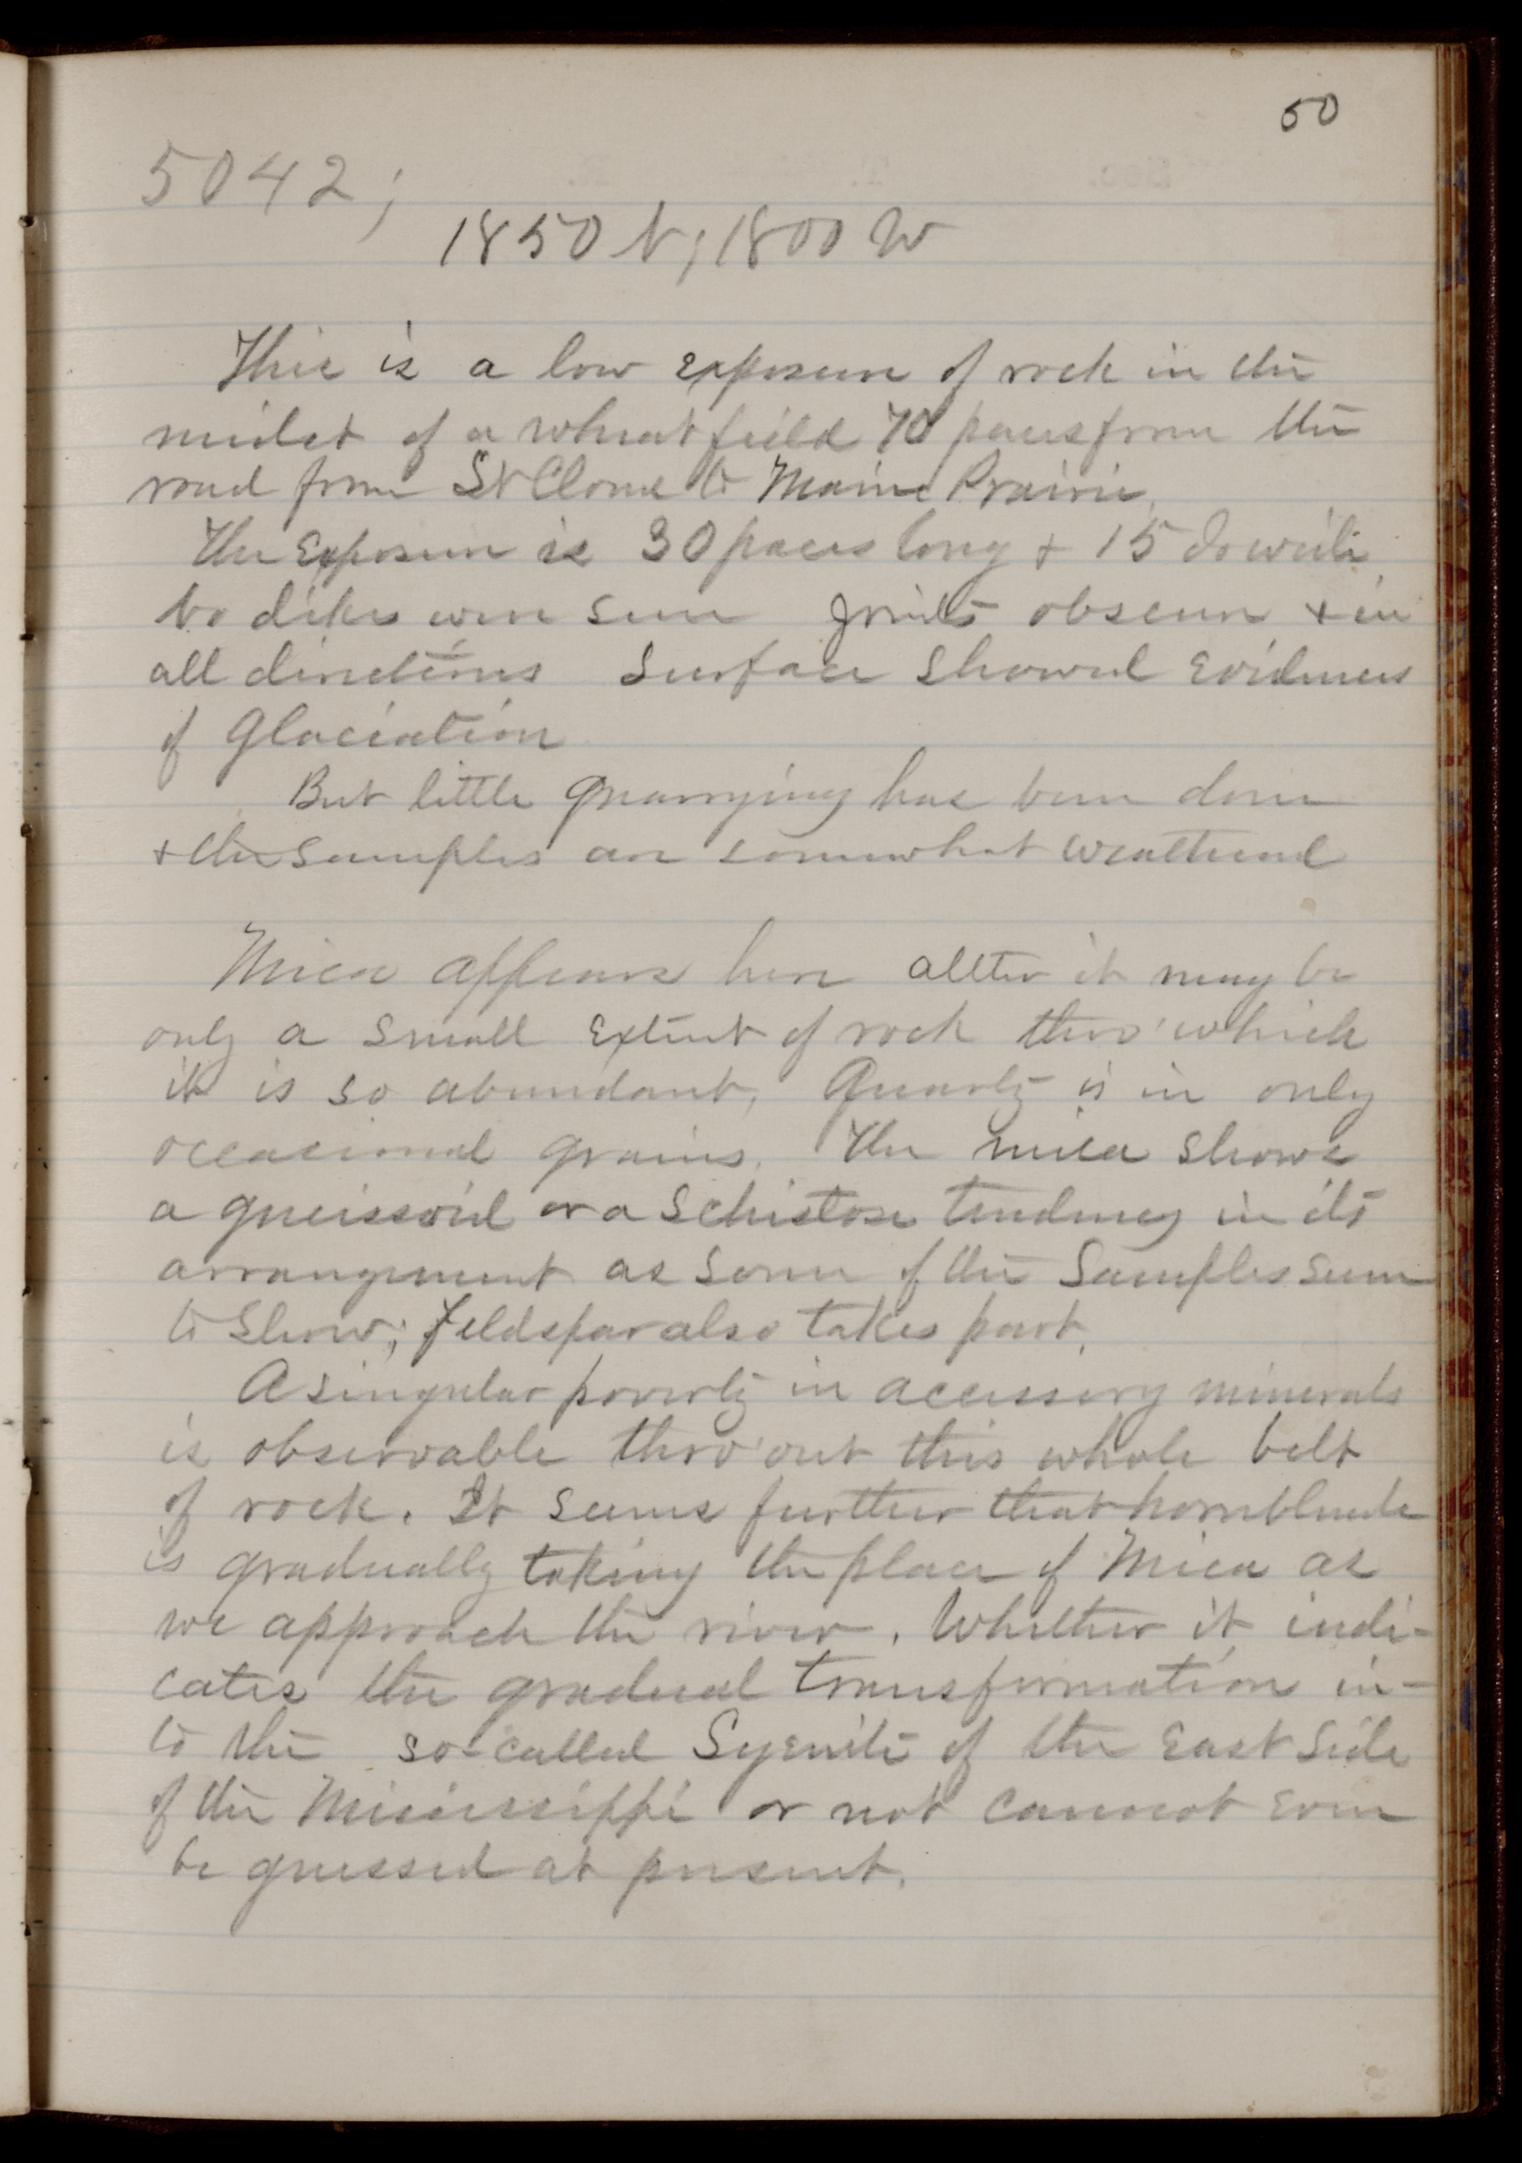 50
5042;
1850 N, 1800 W
This is a low exposure of rock in the
midst of a wheat field 70 paces from the
road from St Cloud to Maine Prairie.
The Exposure is 30 paces long + 15 do wide.
No dikes were seen Joints obscure + in
all directions Surface showed Evidences
of Glaciation
But little Quarrying has been done
+ the samples are somewhat weathered
Mica appears here altho it may be
only a small Extent of rock thro' which
it is so abundant, Quartz is in only
occasional grains. The mica shows
a gneissoid or a Schistose tendency in its
arrangement as some of the Samples seem
to show; feldspar also takes part.
A singular poverty in accessory minerals
is observable thro'out this whole belt
of rock. It seems further that hornblende
is gradually taking the place of Mica as
we approach the river. Whether it indi-
cates the gradual transformation in-
to the so-called Syenite of the East Side
of the Mississippi or not cannot even
be guessed at present.